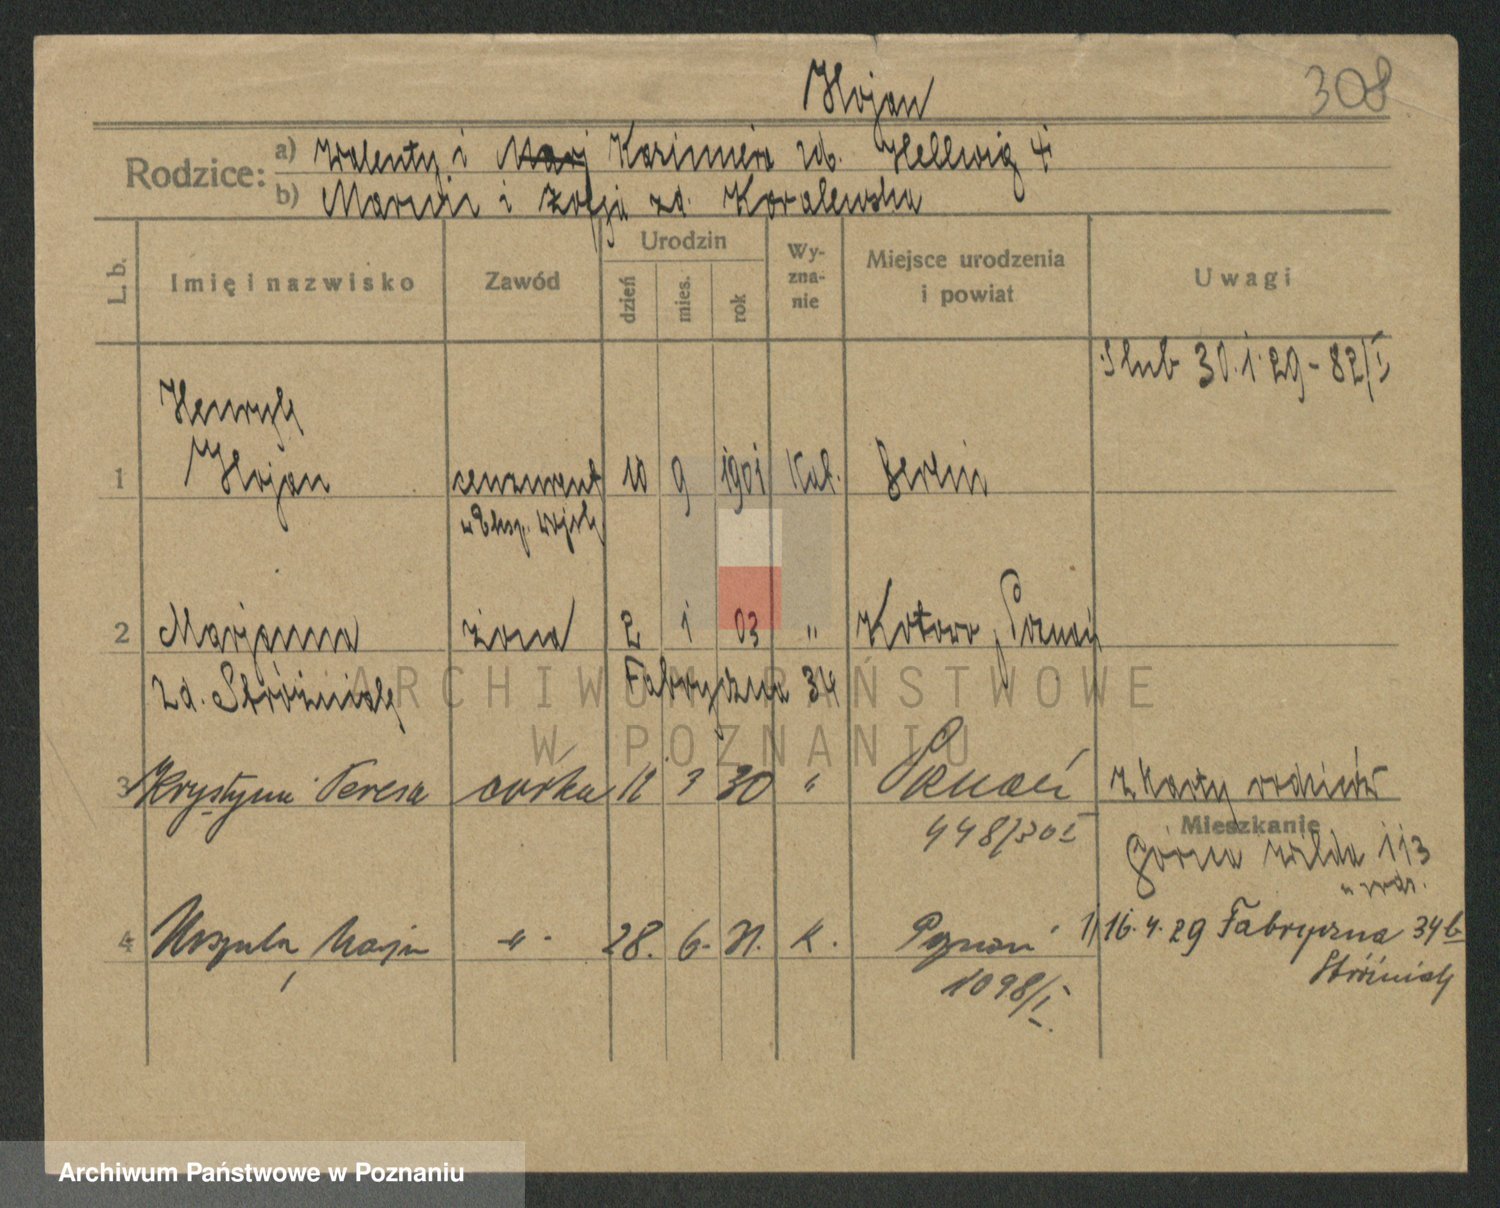 308
Hojan
Rodzice:
a) Walenty i Kazimiera zd. Hellwig
b) Marcin i Zofja zd. Koralewska
L. b.
Imię i nazwisko
Zawód
Urodzin
dzień
mies.
rok
Wy-
zna-
nie
Miejsce urodzenia
i powiat
Uwagi
Slub 30.1.29 - 82/I
Henryk
1 Hojan 10 9 1901 Kat. Berlin
2 Marjanna żona 2 1 03 " Kotowo, Poznań
zd. Stróżniak Fabryczna 34
3 Krystyna Teresa córka 12 3 30 " Poznań z karty rodziców
448/30 I
Mieszkanie
Górna Wilda 113
4 Urszula Marja -"- 28. 6. 31. K. Poznań
1/ 16.4.29 Fabryczna 34b
Stróżniak
1098/I.
ARCHIWUM PAŃSTWOWE
W POZNANIU
Archiwum Państwowe w Poznaniu